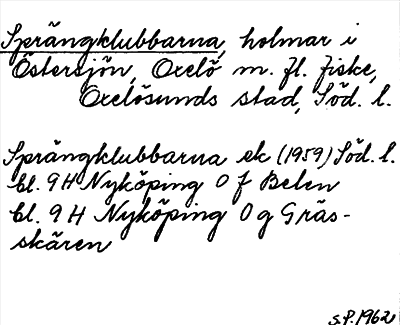 Sprängklubbarna, holmar i
Östersjön, Oxelö m. fl. fiske,
Oxelösunds stad, Söd. l.
Sprängklubbarna ek (1959) Söd. l.
bl. 9H Nyköping 0 f Belen
bl. 9H Nyköping 0 g Gräs-
skären
S.P. 1962